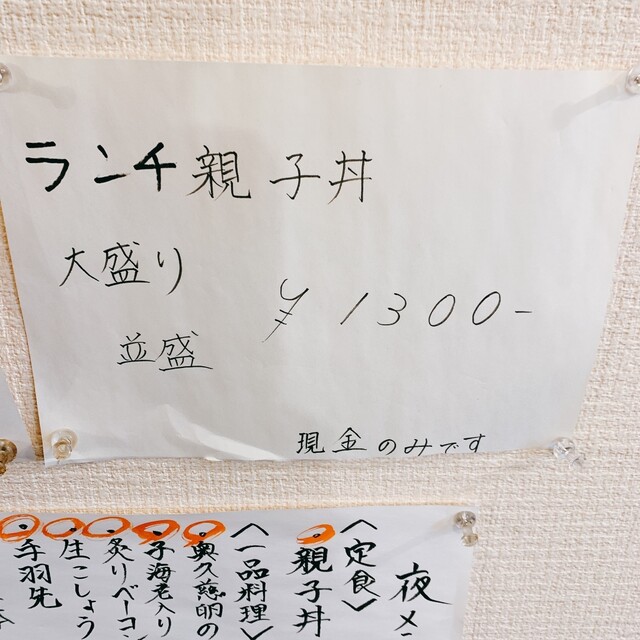 ランチ親子丼
大盛り
¥1300-
並盛
現金のみです
夜メ
〈定食〉
親子丼
〈一品料理〉
奥久慈卵の
子海老入り
炙りベーコン
生こしょう
手羽先